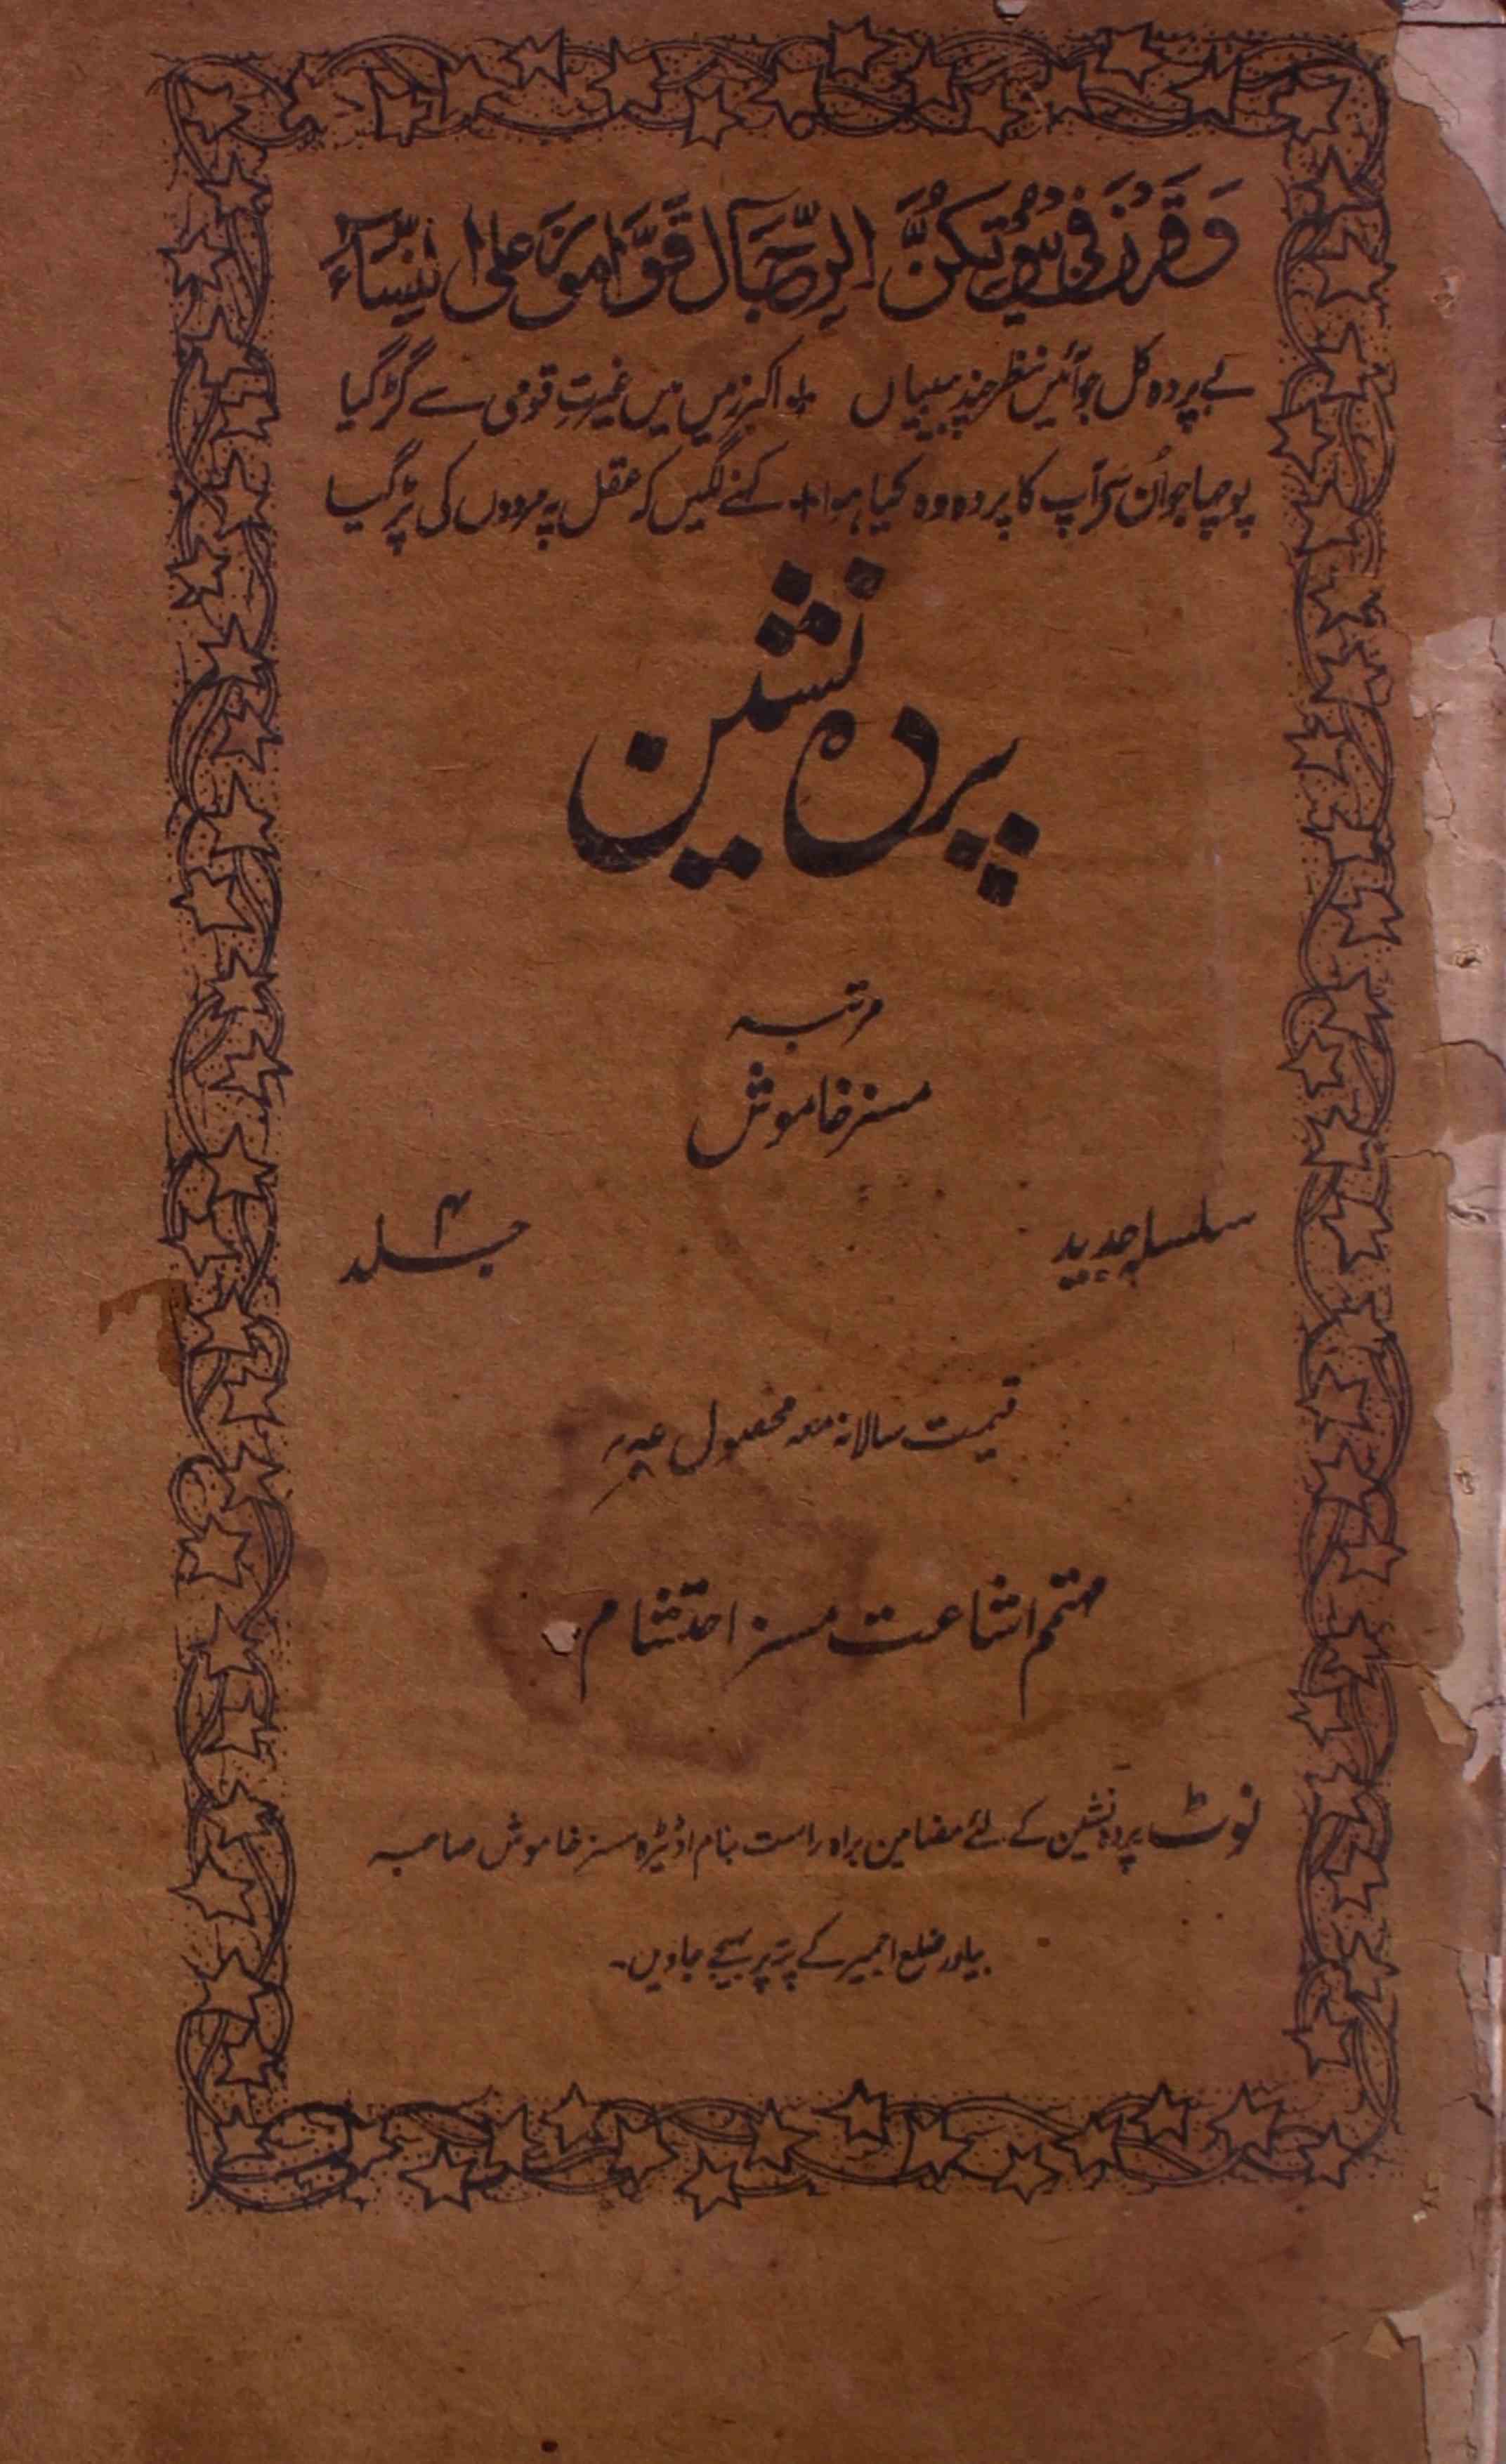 وَقَرْنَ فِی بُیُوْتِکُنَّ اَلرِّجَالُ قَوَّامُوْنَ عَلَی النِّسَآءِ
بے پردہ کل جو آئیں نظر چند بیبیاں + اکبر زمیں میں غیرتِ قومی سے گڑ گیا
پوچھا جو اُن سے آپ کا پردہ وہ کیا ہوا + کہنے لگیں کہ عقل پہ مردوں کی پڑ گیا
پردہ نشین
مرتبہ
مسز خاموش
سلسلہ جدید جلد ۴
قیمت سالانہ معہ محصول
مہتمم اشاعت مسز احتشام
نوٹ پردہ نشین کے لئے مضامین براہ راست بنام اڈیٹرہ مسز خاموش صاحبہ
بیاور ضلع اجمیر کے پتہ پر بھیجے جاویں۔